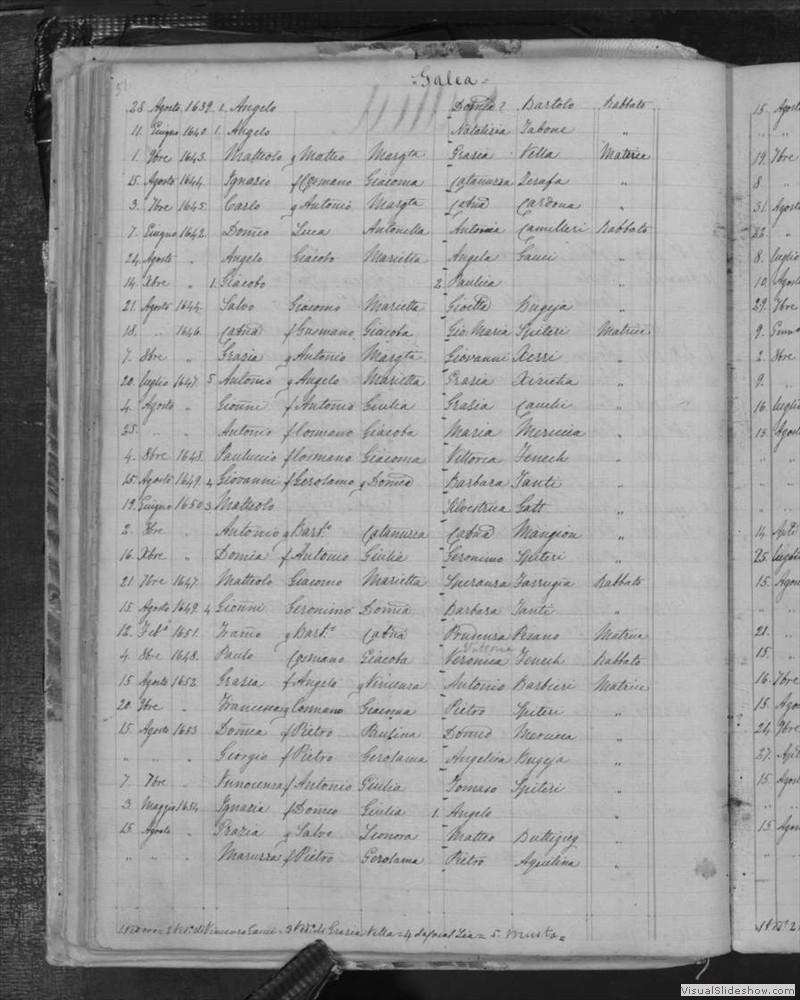 51
Galea
28 Agosto 1639. 1. Angelo Domca? Bartolo Rabbato
11 Giugno 1640. 1. Angelo Natalizia Tabone "
1. 9bre 1643. Matteolo q Matteo Margta Grazia Vella Matrice
15. Agosto 1644. Ignazio f Cosmano Giacoma Catanuzza Zerafa "
3. 7bre 1645. Carlo q Antonio Margta Catna Cardona "
7. Giugno 1642. Domco Luca Antonella Antonia Camilleri Rabbato
24. Agosto " Angelo Giacobo Marietta Angela Gauci "
14. Xbre " 1. Giacobo 2 Paulica "
21. Agosto 1644. Salvo Giacomo Marietta Gioetta Bugeja "
18. " 1646. Catna f Gusmano Giacoba Gio. Maria Spiteri Matrice
7. 8bre " Grazia q Antonio Margta Giovanni Xerri "
20. Luglio 1647. 5 Antonio q Angelo Marietta Grazia Xiricha "
4. Agosto " Gionni f Antonio Giulia Grazia "
25. " " Antonio f Cosmano Giacoba Maria Mercieca "
4. 8bre 1648. Paulucio f Cosmano Giacoma Vittoria Fenech "
15. Agosto 1649. 4 Giovanni f Gerolamo q Domca Barbara Tanti "
19. Giugno 1650. 3 Matteolo Silvestrica Gatt "
2. 7bre " Antonio q Barto Catanuzza Catna Mangion "
16. Xbre " Domca f Antonio Giulia Geronimo Spiteri "
21. 7bre 1647. Matteolo Giacomo Marietta Speranza Farrugia Rabbato
15. Agosto 1649. 4 Gionni Geronimo Domca Barbara Tanti "
12. Feb.o 1651. q Barto Catna Prudenza Pisano Matrice
Vittoria
4. 8bre 1648. Paulo Cosmano Giacoba Veronica Fenech Rabbato
15 Agosto 1652. Grazia f Angelo q Vincenza Antonio Barbieri Matrice
20. 7bre " Francesca q Cosmano Giacoma Pietro Spiteri "
15. Agosto 1653 Domca f Pietro Paulina Domco Mercieca "
" " " Giorgio f Pietro Gerolama Angelica Bugeja "
7. 7bre " f Antonio Giulia Tomaso Spiteri "
3. Maggio 1654. Ignazia f Domco Giulia 1. Angelo "
15. Agosto " Grazia q Salvo Leonora Matteo Buttigieg "
" " " Maruzza f Pietro Gerolama Pietro Aquilina "
2 Ved. di Vincenzo Gauci = 3 Ved. di Grazia Vella = 4 = 5. Musta =
15. Agosto
" "
19. 7bre
8 "
31. Agosto
22. "
8. Luglio
10. Agosto
29. 7bre
9. Genn
2. 8bre
9. "
16. Luglio
15. Agosto
" "
" "
" "
14. Aple
25. Luglio
15. Agosto
" "
21. "
15. "
16. 7bre
15. Agos
24. 9bre
27. Aple
15. Agos
" "
15. Agos
VisualSlideshow.com